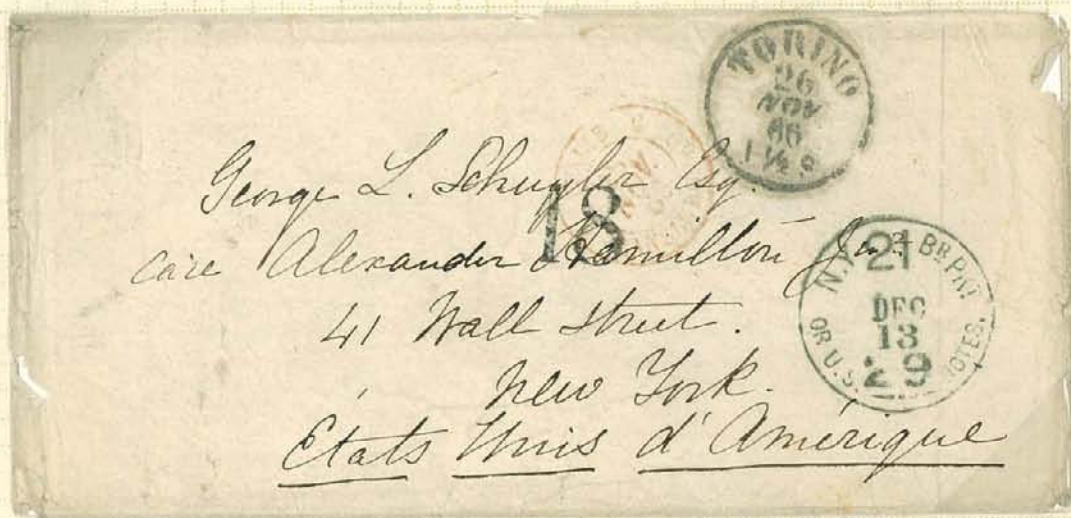 TORINO
26
NOV
66
1 ½ S
George L. Schuyler Esq.
18
care Alexander Hamilton Jun.r
41 Wall Street.
New York.
États Unis d'Amérique
N.Y. BR PKT
21
DEC
13
29
OR U.S. NOTES.